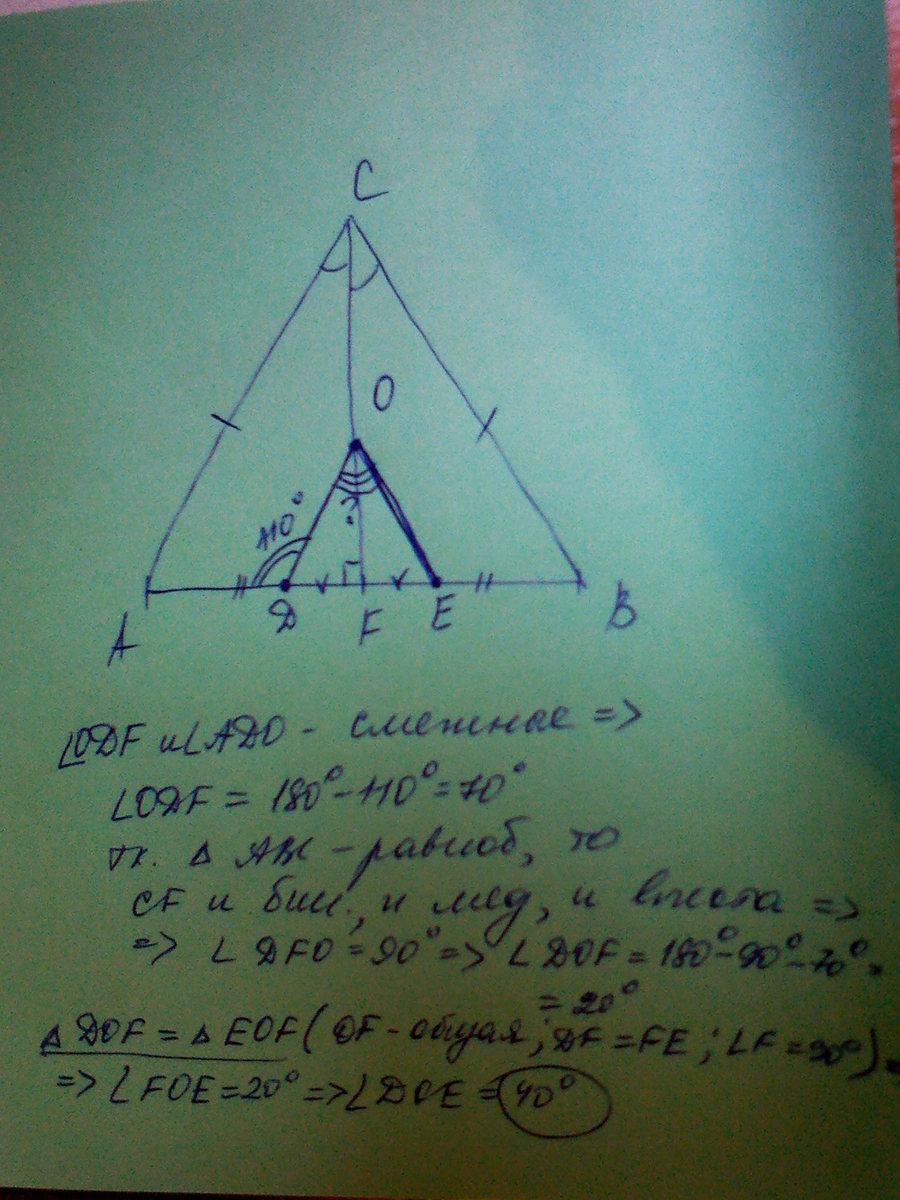 C
O
110°
?
A
D
F
E
B
∠ODF и ∠ADO - смежные =>
∠ODF = 180° - 110° = 70°
т.к. △ ABC - равноб, то
CF и бис., и мед, и высота =>
=> ∠ DFO = 90° => ∠ DOF = 180° - 90° - 70° =
= 20°
△ DOF = △ EOF ( OF - общая ; DF = FE ; ∠F = 90° )
=> ∠ FOE = 20° => ∠ DOE = 40°